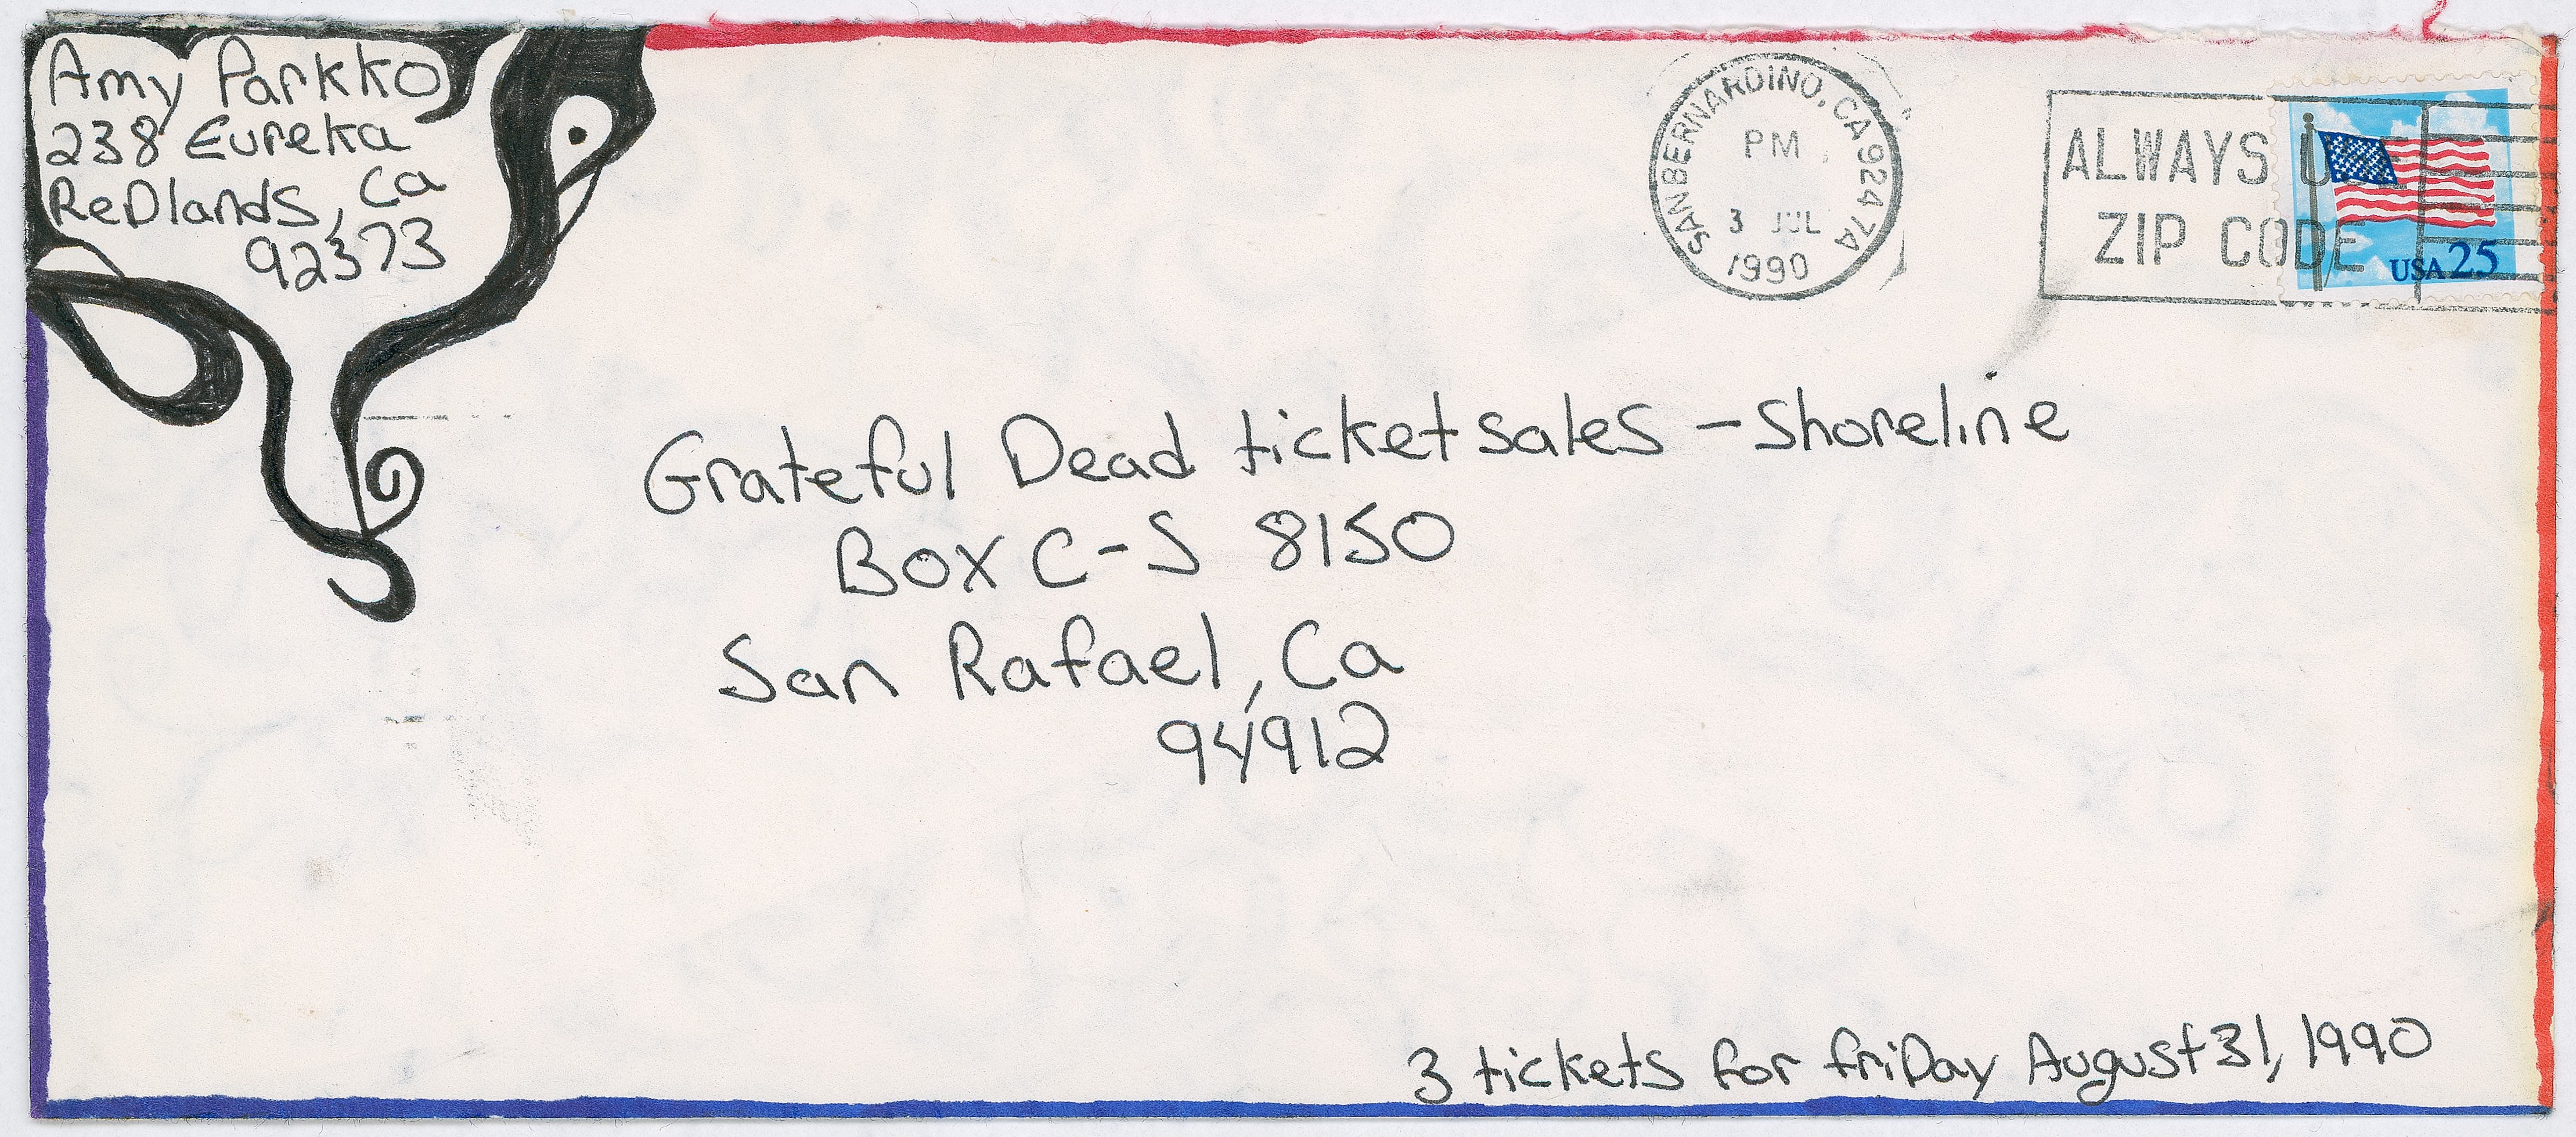 Amy Parkko
238 Eureka
ReDlands, Ca
92373
SAN BERNARDINO, CA 924 74
PM
3 JUL
1990
ALWAYS USE
ZIP CODE
USA 25
Grateful Dead ticket sales - Shoreline
Box C-S 8150
San Rafael, Ca
94912
3 tickets for friDay August 31, 1990